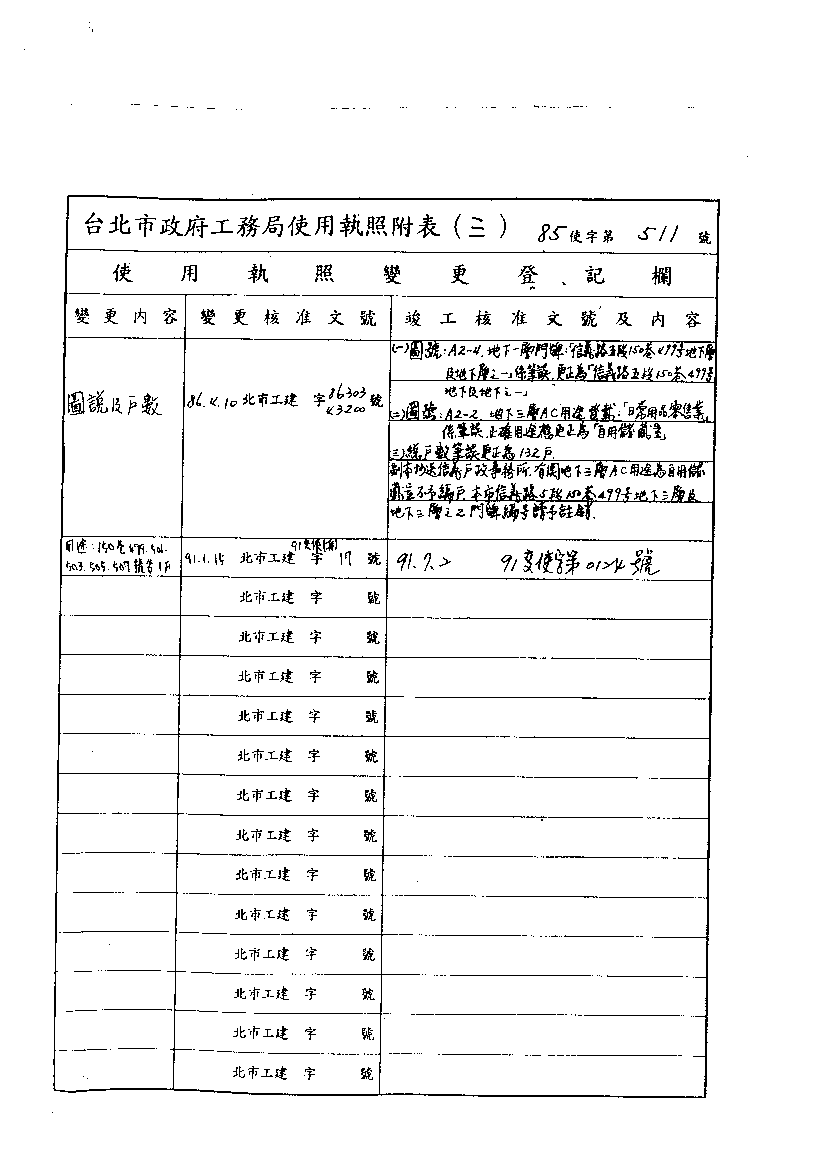 台北市政府工務局使用執照附表(三) 85使字第 511 號
使用執照變更登記欄
變更內容 變更核准文號 竣工核准文號及內容
圖說及戶數 86.4.10 北市工建 字 86303 43200 號
(一)圖號:A2-4.地下一層門牌:「信義路五段150巷499號地下層
及地下層之一」係筆誤.更正為「信義路五段150巷499號
地下及地下之一」
(二)圖號:A2-2.地下三層AC用途登載:「日常用品零售業」
係筆誤.正確用途應更正為「自用儲藏室」
(三)總戶數筆誤更正為132戶.
副本抄送信義戶政事務所.有關地下三層AC用途為自用儲
藏室不予編戶.本市信義路5段150巷499號地下三層及
地下三層之2門牌編號請予註銷.
用途:150巷499.501.
503.505.507號
91.1.15 北市工建 字 17 號
91.7.2 91變使字第0124號
北市工建 字 號
北市工建 字 號
北市工建 字 號
北市工建 字 號
北市工建 字 號
北市工建 字 號
北市工建 字 號
北市工建 字 號
北市工建 字 號
北市工建 字 號
北市工建 字 號
北市工建 字 號
北市工建 字 號